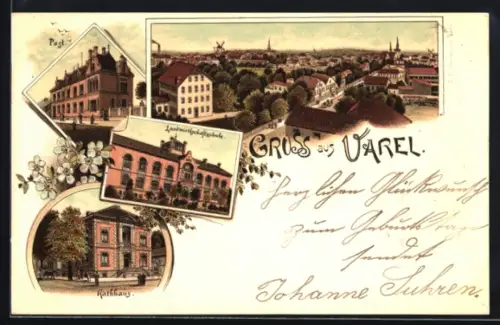 Post.
Landwirthschaftsschule.
Rathhaus.
GRUSS aus VAREL.
Herzlichen Glückwunsch
zum Geburtstage
sendet
Johanne Suhren.